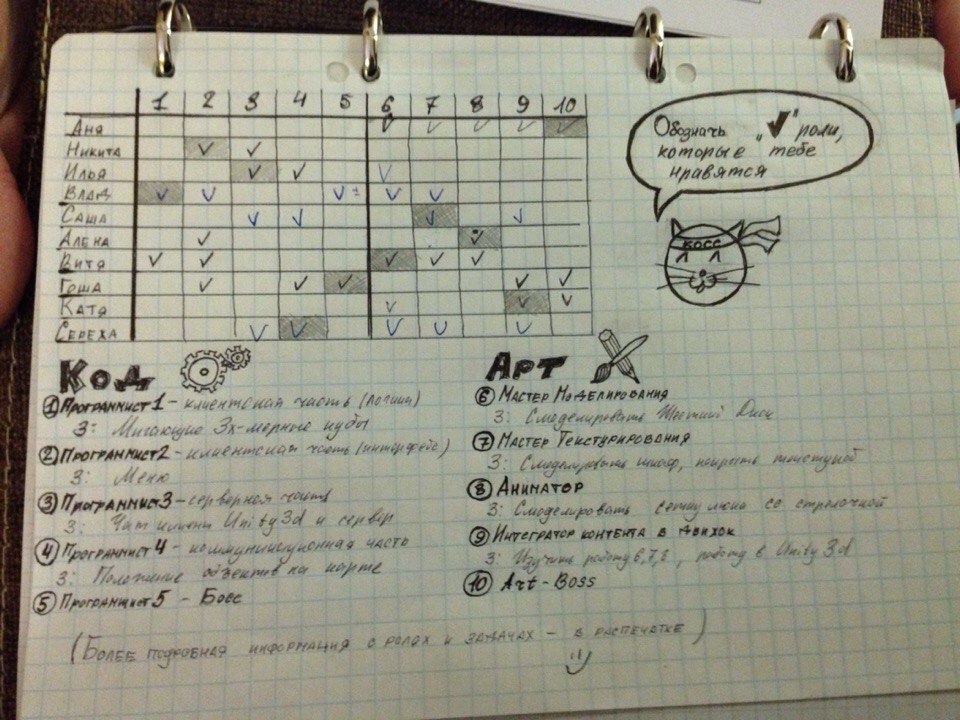 1 2 3 4 5 6 7 8 9 10
Аня ✓ ✓ ✓ ✓ ✓
Никита ✓ ✓
Илья ✓ ✓ ✓
Влад ✓ ✓ ✓ ✓ ✓
Саша ✓ ✓ ✓ ✓
Алека ✓ ✓
Витя ✓ ✓ ✓ ✓ ✓
Гоша ✓ ✓ ✓ ✓ ✓
Катя ✓ ✓ ✓
Серёха ✓ ✓ ✓ ✓ ✓
Обозначь „✓" роли,
которые тебе
нравятся
КОСС
Код
1 Программист 1 - клиентская часть (логика)
З: Мигающие 3х-мерные кубы
2 Программист 2 - клиентская часть (интерфейс)
З: Меню
3 Программист 3 - серверная часть
З: Чат Unity3d и сервер
4 Программист 4 - коммуникационная часть
З: Положение объектов на карте
5 Программист 5 - Босс
Арт
6 Мастер Моделирования
З: Смоделировать Жёсткий Диск
7 Мастер Текстурирования
З: Смоделировать шкаф, покрыть текстурой
8 Аниматор
З: Смоделировать со стрелочкой
9 Интегратор контента в движок
З: Изучить работу 6,7,8, работу в Unity 3d
10 Art-Boss
(Более подробная информация о ролях и задачах - в распечатке)